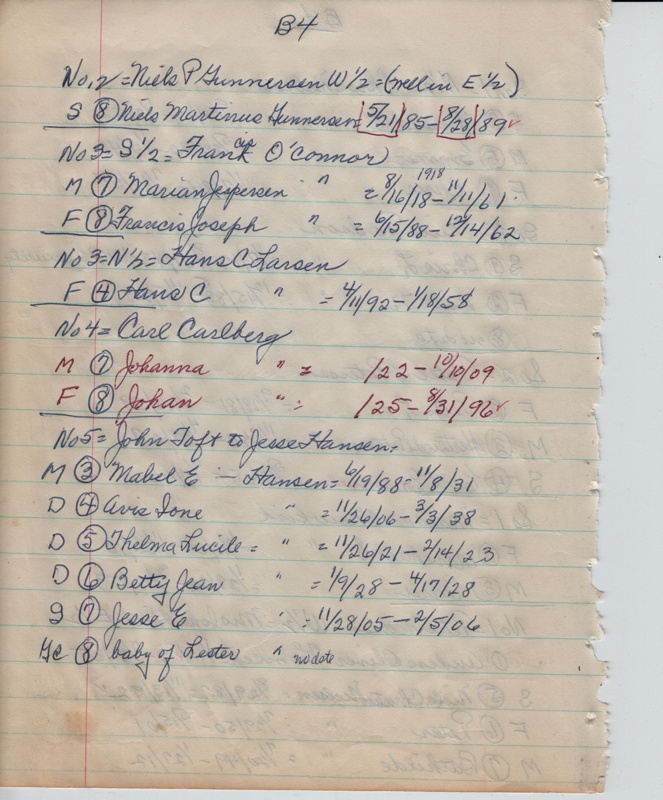 B4
No. 2 = Niels P Gunnersen W 1/2 = (well in E 1/2)
S ⑧ Niels Martinus Gunnersen = 5/21/85 - 8/28/89 ✓
No 3 = S 1/2 = Frank O'Connor
M ⑦ Marian Jespersen " = 8/16/18 - 11/11/61 1918
F ⑧ Francis Joseph " = 6/15/88 - 12/14/62
No 3 = N 1/2 = Hans C Larsen
F ④ Hans C " = 4/11/92 - 1/18/58
No 4 = Carl Carlberg
M ⑦ Johanna " = /22 - 10/10/09
F ⑧ Johan " = /25 - 8/31/96 ✓
No 5 = John Toft to Jesse Hansen =
M ③ Mabel E - Hansen = 6/19/88 = 11/8/31
D ④ Avis Ione " = 11/26/06 - 3/3/38
D ⑤ Thelma Lucile = " = 11/26/21 - 2/14/23
D ⑥ Betty Jean " = 1/9/28 - 4/17/28
S ⑦ Jesse E " = 11/28/05 - 2/5/06
Gc ⑧ baby of Lester " no date